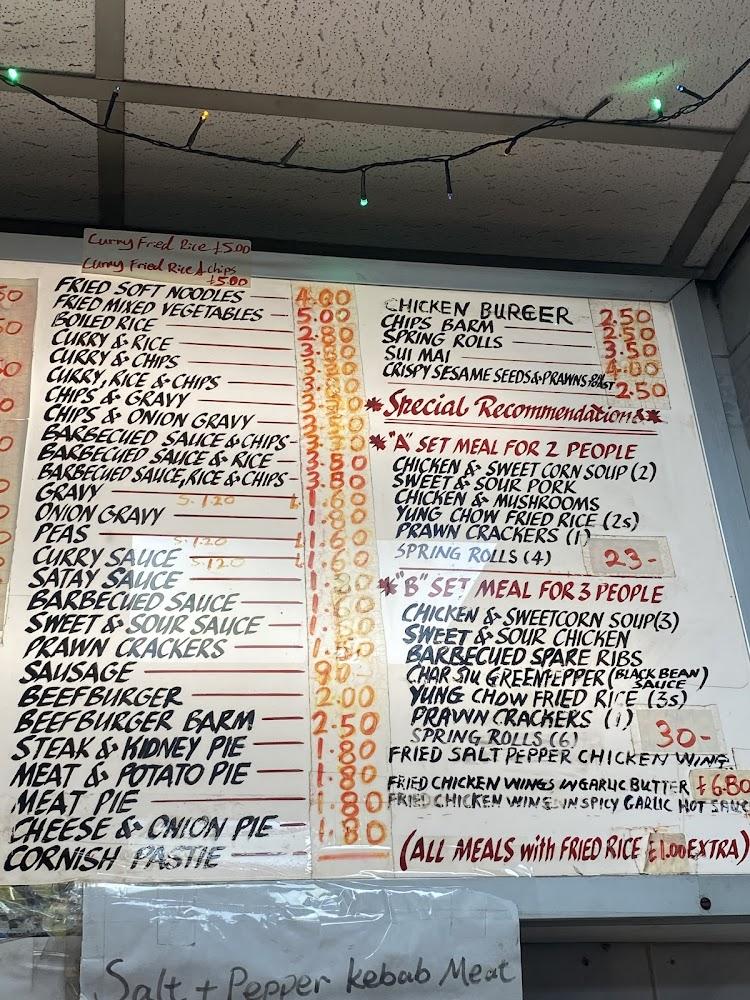 Curry Fried Rice £5.00
Curry Fried Rice & chips
£5.00
FRIED SOFT NOODLES 4.00
FRIED MIXED VEGETABLES 5.00
BOILED RICE 2.80
CURRY & RICE
CURRY & CHIPS
CURRY, RICE & CHIPS
CHIPS & GRAVY
CHIPS & ONION GRAVY
BARBECUED SAUCE & CHIPS
BARBECUED SAUCE & RICE 3.50
BARBECUED SAUCE, RICE & CHIPS 3.80
GRAVY S. 1.20 L 1.60
ONION GRAVY 1.80
PEAS S. 1.20 L 1.60
CURRY SAUCE S. 1.20 L 1.60
SATAY SAUCE
BARBECUED SAUCE 1.60
SWEET & SOUR SAUCE
PRAWN CRACKERS
SAUSAGE 90
BEEFBURGER 2.00
BEEFBURGER BARM 2.50
STEAK & KIDNEY PIE 1.80
MEAT & POTATO PIE 1.80
MEAT PIE 1.80
CHEESE & ONION PIE 1.80
CORNISH PASTIE
CHICKEN BURGER 2.50
CHIPS BARM 2.50
SPRING ROLLS 3.50
SUI MAI 4.00
CRISPY SESAME SEEDS & PRAWNS ON TOAST 2.50
*Special Recommendations*
*"A" SET MEAL FOR 2 PEOPLE
CHICKEN & SWEET CORN SOUP (2)
SWEET & SOUR PORK
CHICKEN & MUSHROOMS
YUNG CHOW FRIED RICE (2s)
PRAWN CRACKERS (1)
SPRING ROLLS (4) 23-
*"B" SET MEAL FOR 3 PEOPLE
CHICKEN & SWEETCORN SOUP (3)
SWEET & SOUR CHICKEN
BARBECUED SPARE RIBS
CHAR SIU GREENPEPPER (BLACK BEAN SAUCE)
YUNG CHOW FRIED RICE (3s)
PRAWN CRACKERS (1)
SPRING ROLLS (6) 30-
FRIED SALT PEPPER CHICKEN WING.
FRIED CHICKEN WINGS IN GARLIC BUTTER £6.80
FRIED CHICKEN WING IN SPICY GARLIC HOT SAUC
(ALL MEALS with FRIED RICE £1.00 EXTRA)
Salt + Pepper kebab Meat